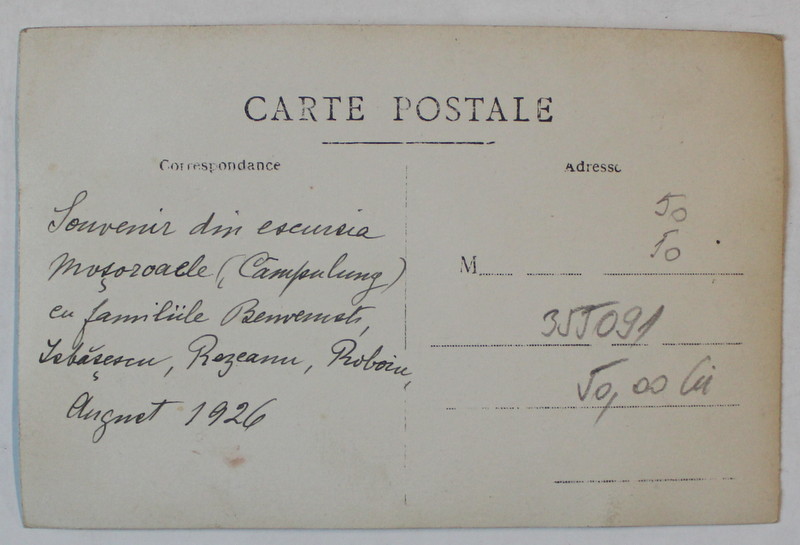 CARTE POSTALE
Correspondance
Adresse
Souvenir din escursia
Moșoroaele (Câmpulung)
cu familiile Benvenisti,
Isbășescu, Rozeanu, Roboiu,
August 1926
50
50
M
355091
50,00 lei